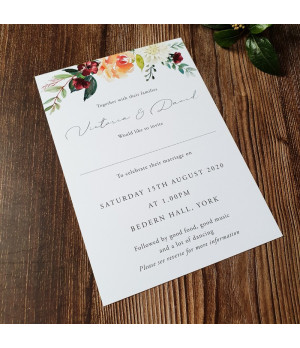 Together with their families
Victoria & David
Would like to invite
To celebrate their marriage on
SATURDAY 15TH AUGUST 2020
AT 1.00PM
BEDERN HALL, YORK
Followed by good food, good music
and a lot of dancing
Please see reverse for more information